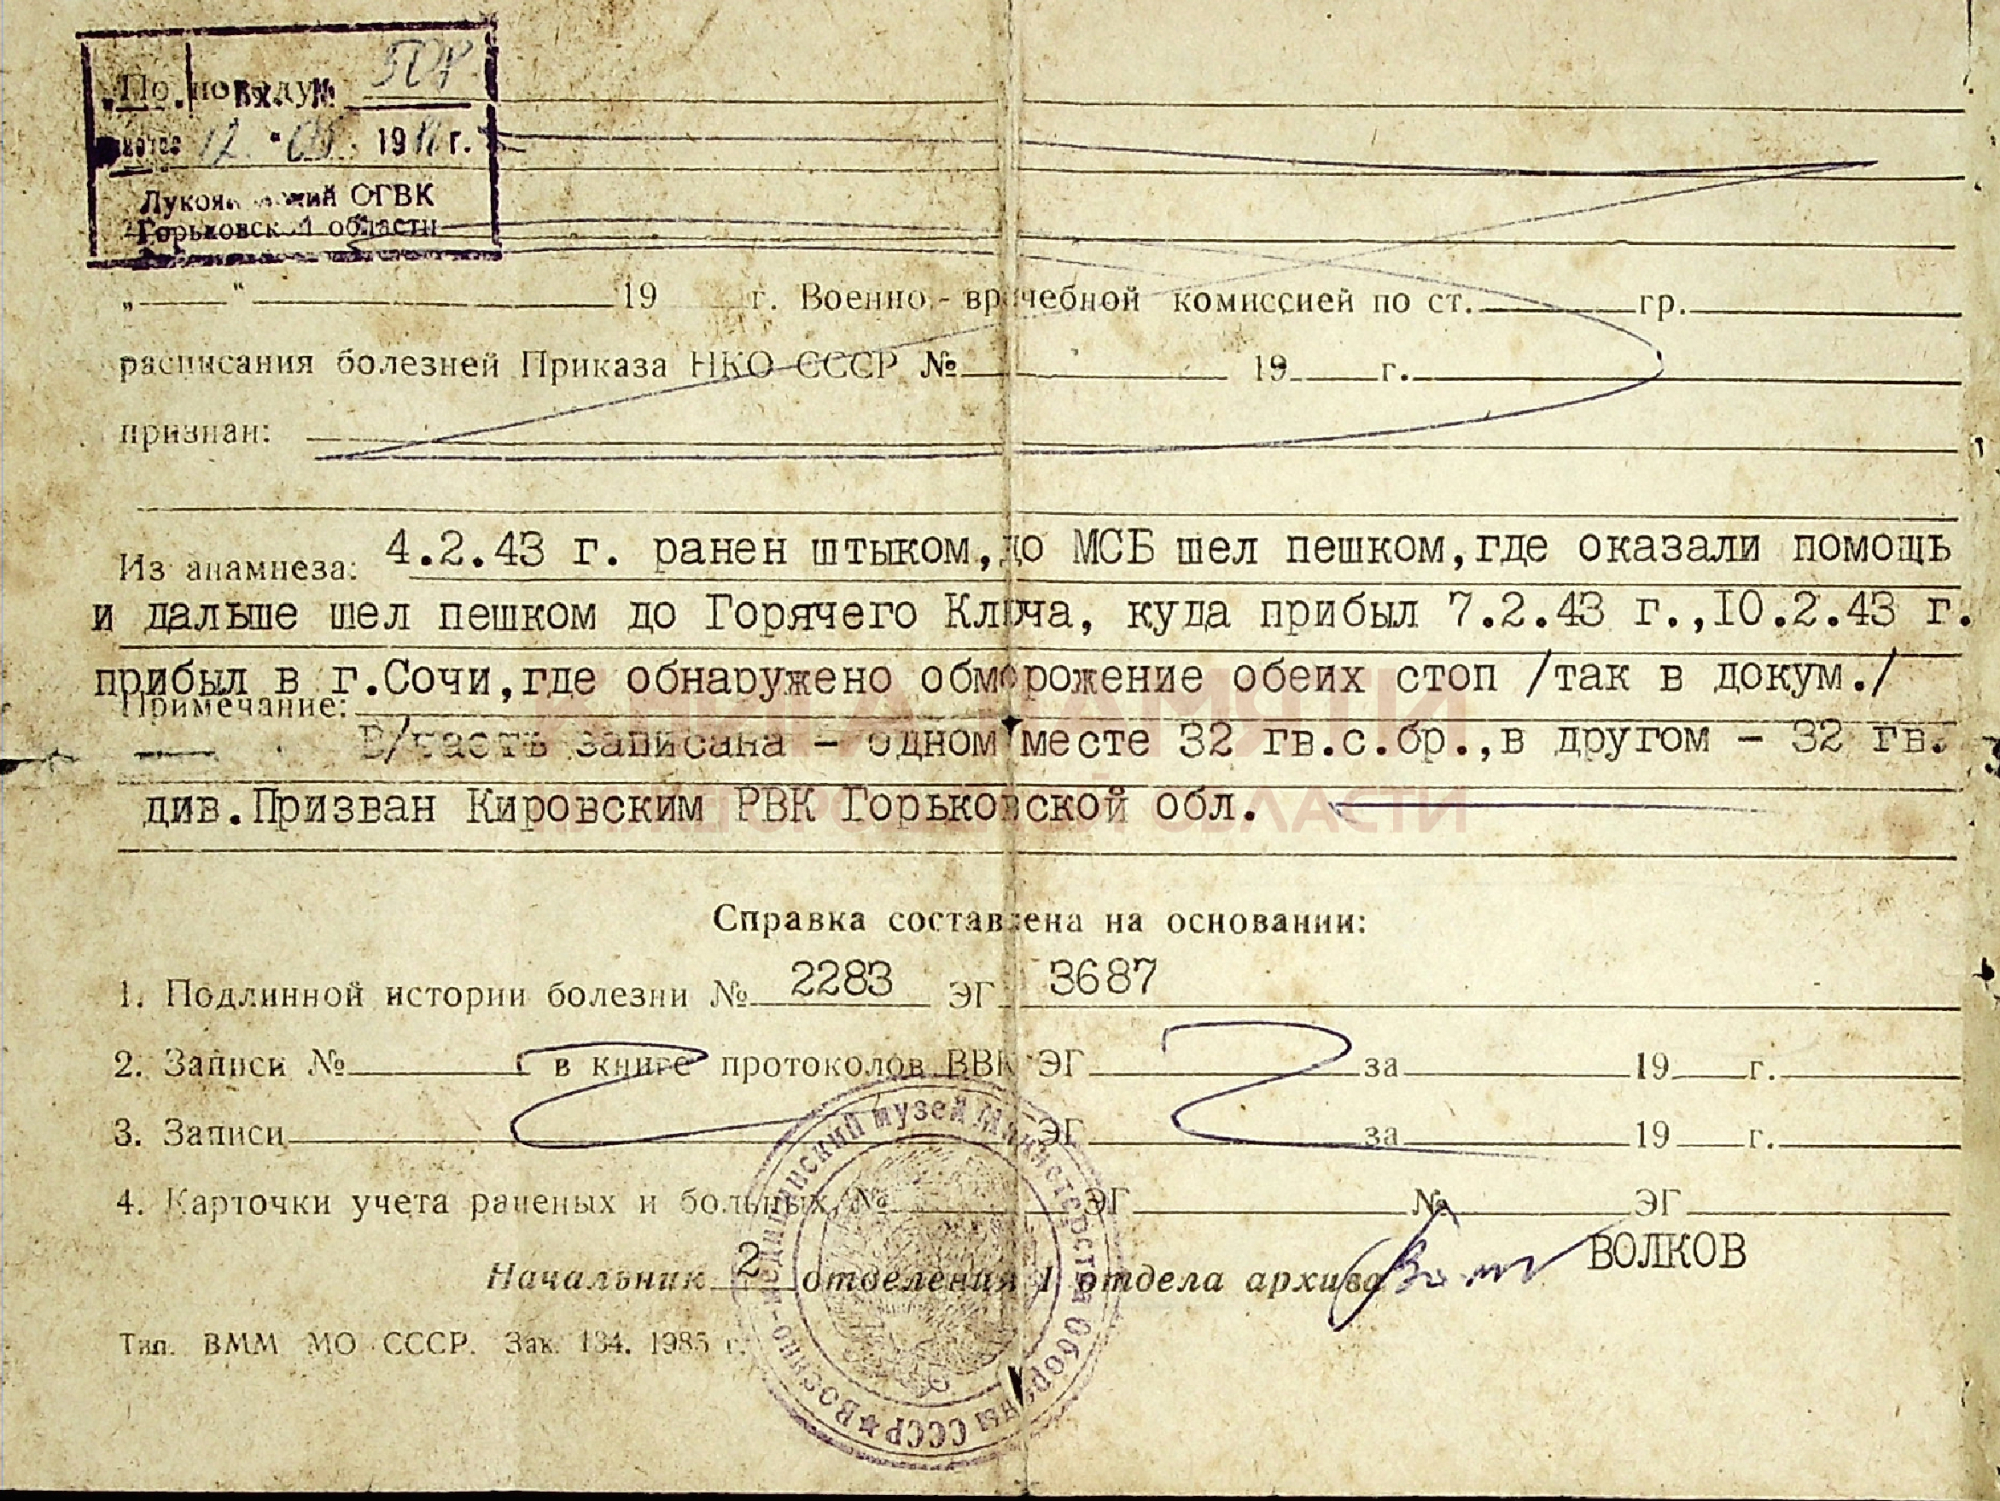 По поводу
Вх. №
19 г.
Лукояновский ОГВК
Горьковской области
„ “ 19 г. Военно-врачебной комиссией по ст. гр.
расписания болезней Приказа НКО СССР № 19 г.
признан:
Из анамнеза: 4.2.43 г. ранен штыком,до МСБ шел пешком,где оказали помощь
и дальше шел пешком до Горячего Ключа, куда прибыл 7.2.43 г.,10.2.43 г.
прибыл в г.Сочи,где обнаружено обморожение обеих стоп /так в докум./
Примечание:
В/часть записана - одном месте 32 гв.с.бр.,в другом - 32 гв.
див.Призван Кировским РВК Горьковской обл.
КНИГА ПАМЯТИ
НИЖЕГОРОДСКОЙ ОБЛАСТИ
Справка составлена на основании:
1. Подлинной истории болезни № 2283 ЭГ 3687
2. Записи № в книге протоколов ВВК ЭГ за 19 г.
3. Записи ЭГ за 19 г.
4. Карточки учета раненых и больных № ЭГ № ЭГ
Начальник 2 отделения 1 отдела архива ВОЛКОВ
Военно-медицинский музей Министерства Обороны СССР
Тип. ВММ МО СССР. Зак. 134. 1985 г.